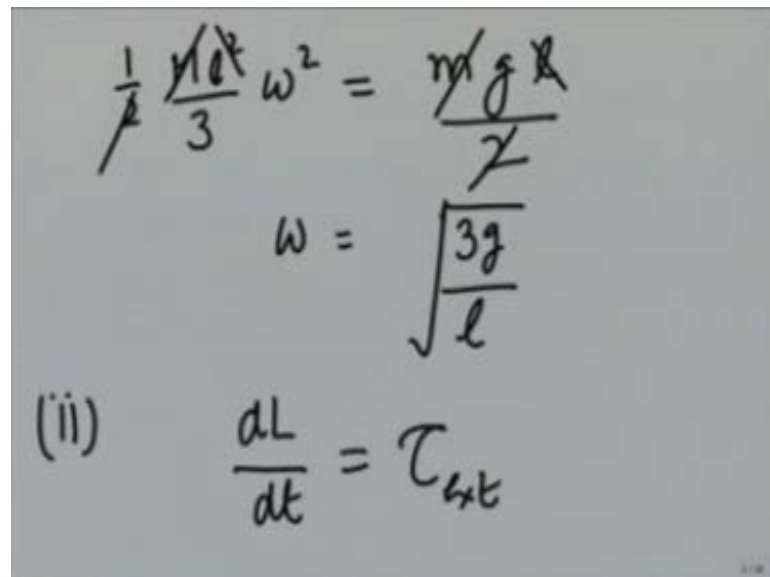 1/2 Ml²/3 ω² = mgl/2
ω = √(3g/l)
(ii) dL/dt = τ_ext